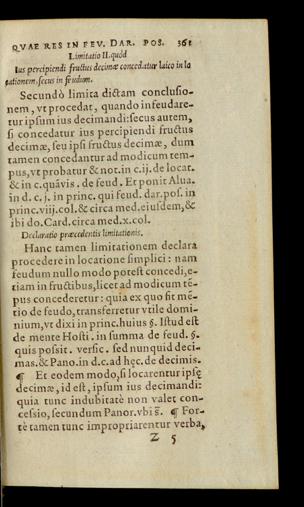 QVAE RES IN FEV. DAR. POS. 361
Limitatio II. quòd
Ius percipiendi fructus decimæ concedatur laico in lo
cationem, secus in feudum.
Secundò limita dictam conclusio-
nem, vt procedat, quando infeudare-
tur ipsum ius decimandi: secus autem,
si concedatur ius percipiendi fructus
decimæ, seu ipsi fructus decimæ, dum
tamen concedantur ad modicum tem-
pus, vt probatur & not. in c. ij. de locat.
& in c. quāvis. de feud. Et ponit Alua.
in d. c. j. in princ. qui feud. dar. pos. in
princ. viij. col. & circa med. eiusdem, &
ibi do. Card. circa med. x. col.
Declaratio præcedentis limitationis.
Hanc tamen limitationem declara
procedere in locatione simplici: nam
feudum nullo modo potest concedi, e-
tiam in fructibus, licet ad modicum tē-
pus concederetur: quia ex quo fit mē-
tio de feudo, transferretur vtile domi-
nium, vt dixi in princ. huius §. Istud est
de mente Hosti. in summa de feud. §.
quis possit. versic. sed nunquid deci-
mas. & Pano. in d. c. ad hęc. de decimis.
¶ Et eodem modo, si locarentur ipsę
decimæ, id est, ipsum ius decimandi:
quia tunc indubitatè non valet con-
cessio, secundum Panor. vbi s̄. ¶ For-
tè tamen tunc impropriarentur verba,
Z 5